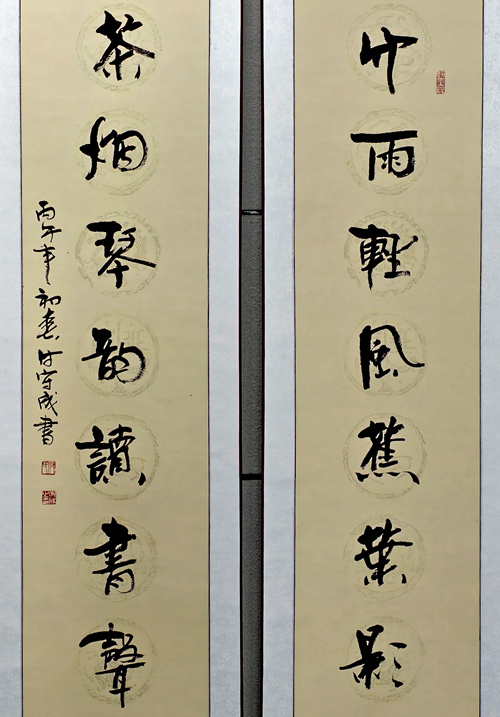 竹雨輕風蕉葉影
茶烟琴韵讀書聲
丙午年初春付守成書